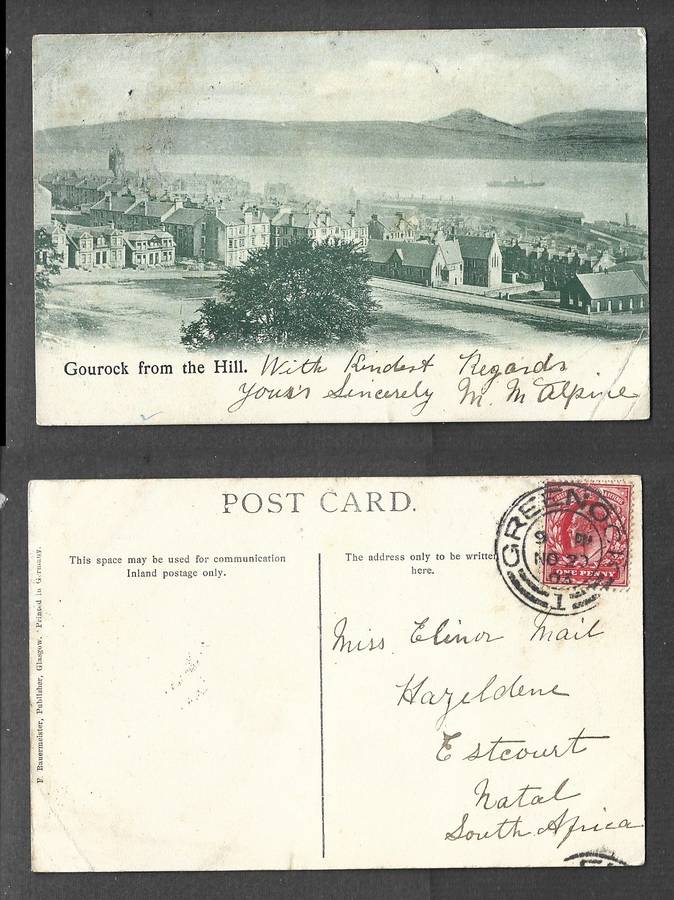 Gourock from the Hill. With Kindest Regards
Yours's Sincerely M. McAlpine
POST CARD.
This space may be used for communication
Inland postage only.
The address only to be written
here.
GREENOCK
9 PM
NO 23
1
ONE PENNY
Miss Elinor Mail
Hazeldene
Estcourt
Natal
South Africa
F. Bauermeister, Publisher, Glasgow. Printed in Germany.